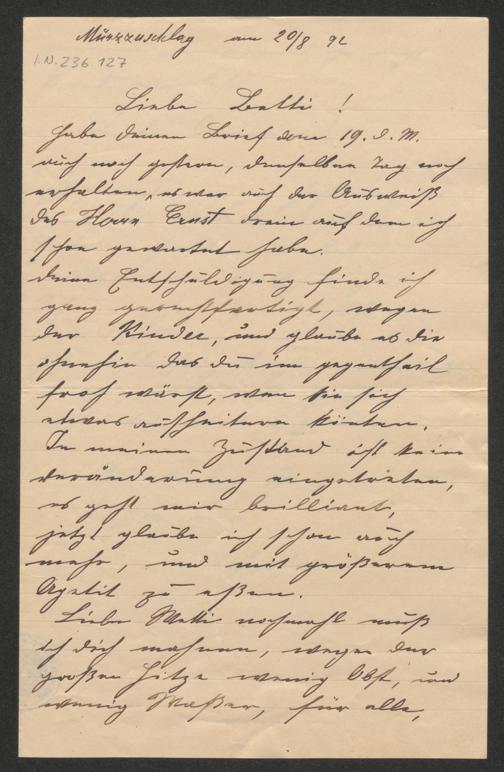 Mürzzuschlag am 20/8 92
I.N. 236.127
Liebe Betti !
Habe deinen Brief vom 19. d. M.
auch noch gestern, denselben Tag noch
erhalten, es war auch der Ausweiß
des Herrn Ernst drein auf dem ich
schon gewartet habe.
Deine Entschuldigung finde ich
ganz gerechtfertigt, wegen
der Kinder, und glaube es dir
ohnehin das du im gegentheil
froh wärst, wen sie sich
etwas aufheitern könten.
In meinen Zustand ist kein
veränderung eingetreten,
es geht mir brilliant,
jetzt glaube ich schon auch
mehr, und mit größerem
Apetit zu eßen.
Liebe Betti nochmahl muß
ich dich mahnen, wegen der
großen Hitze wenig Obst, und
wenig Waßer, für alle,